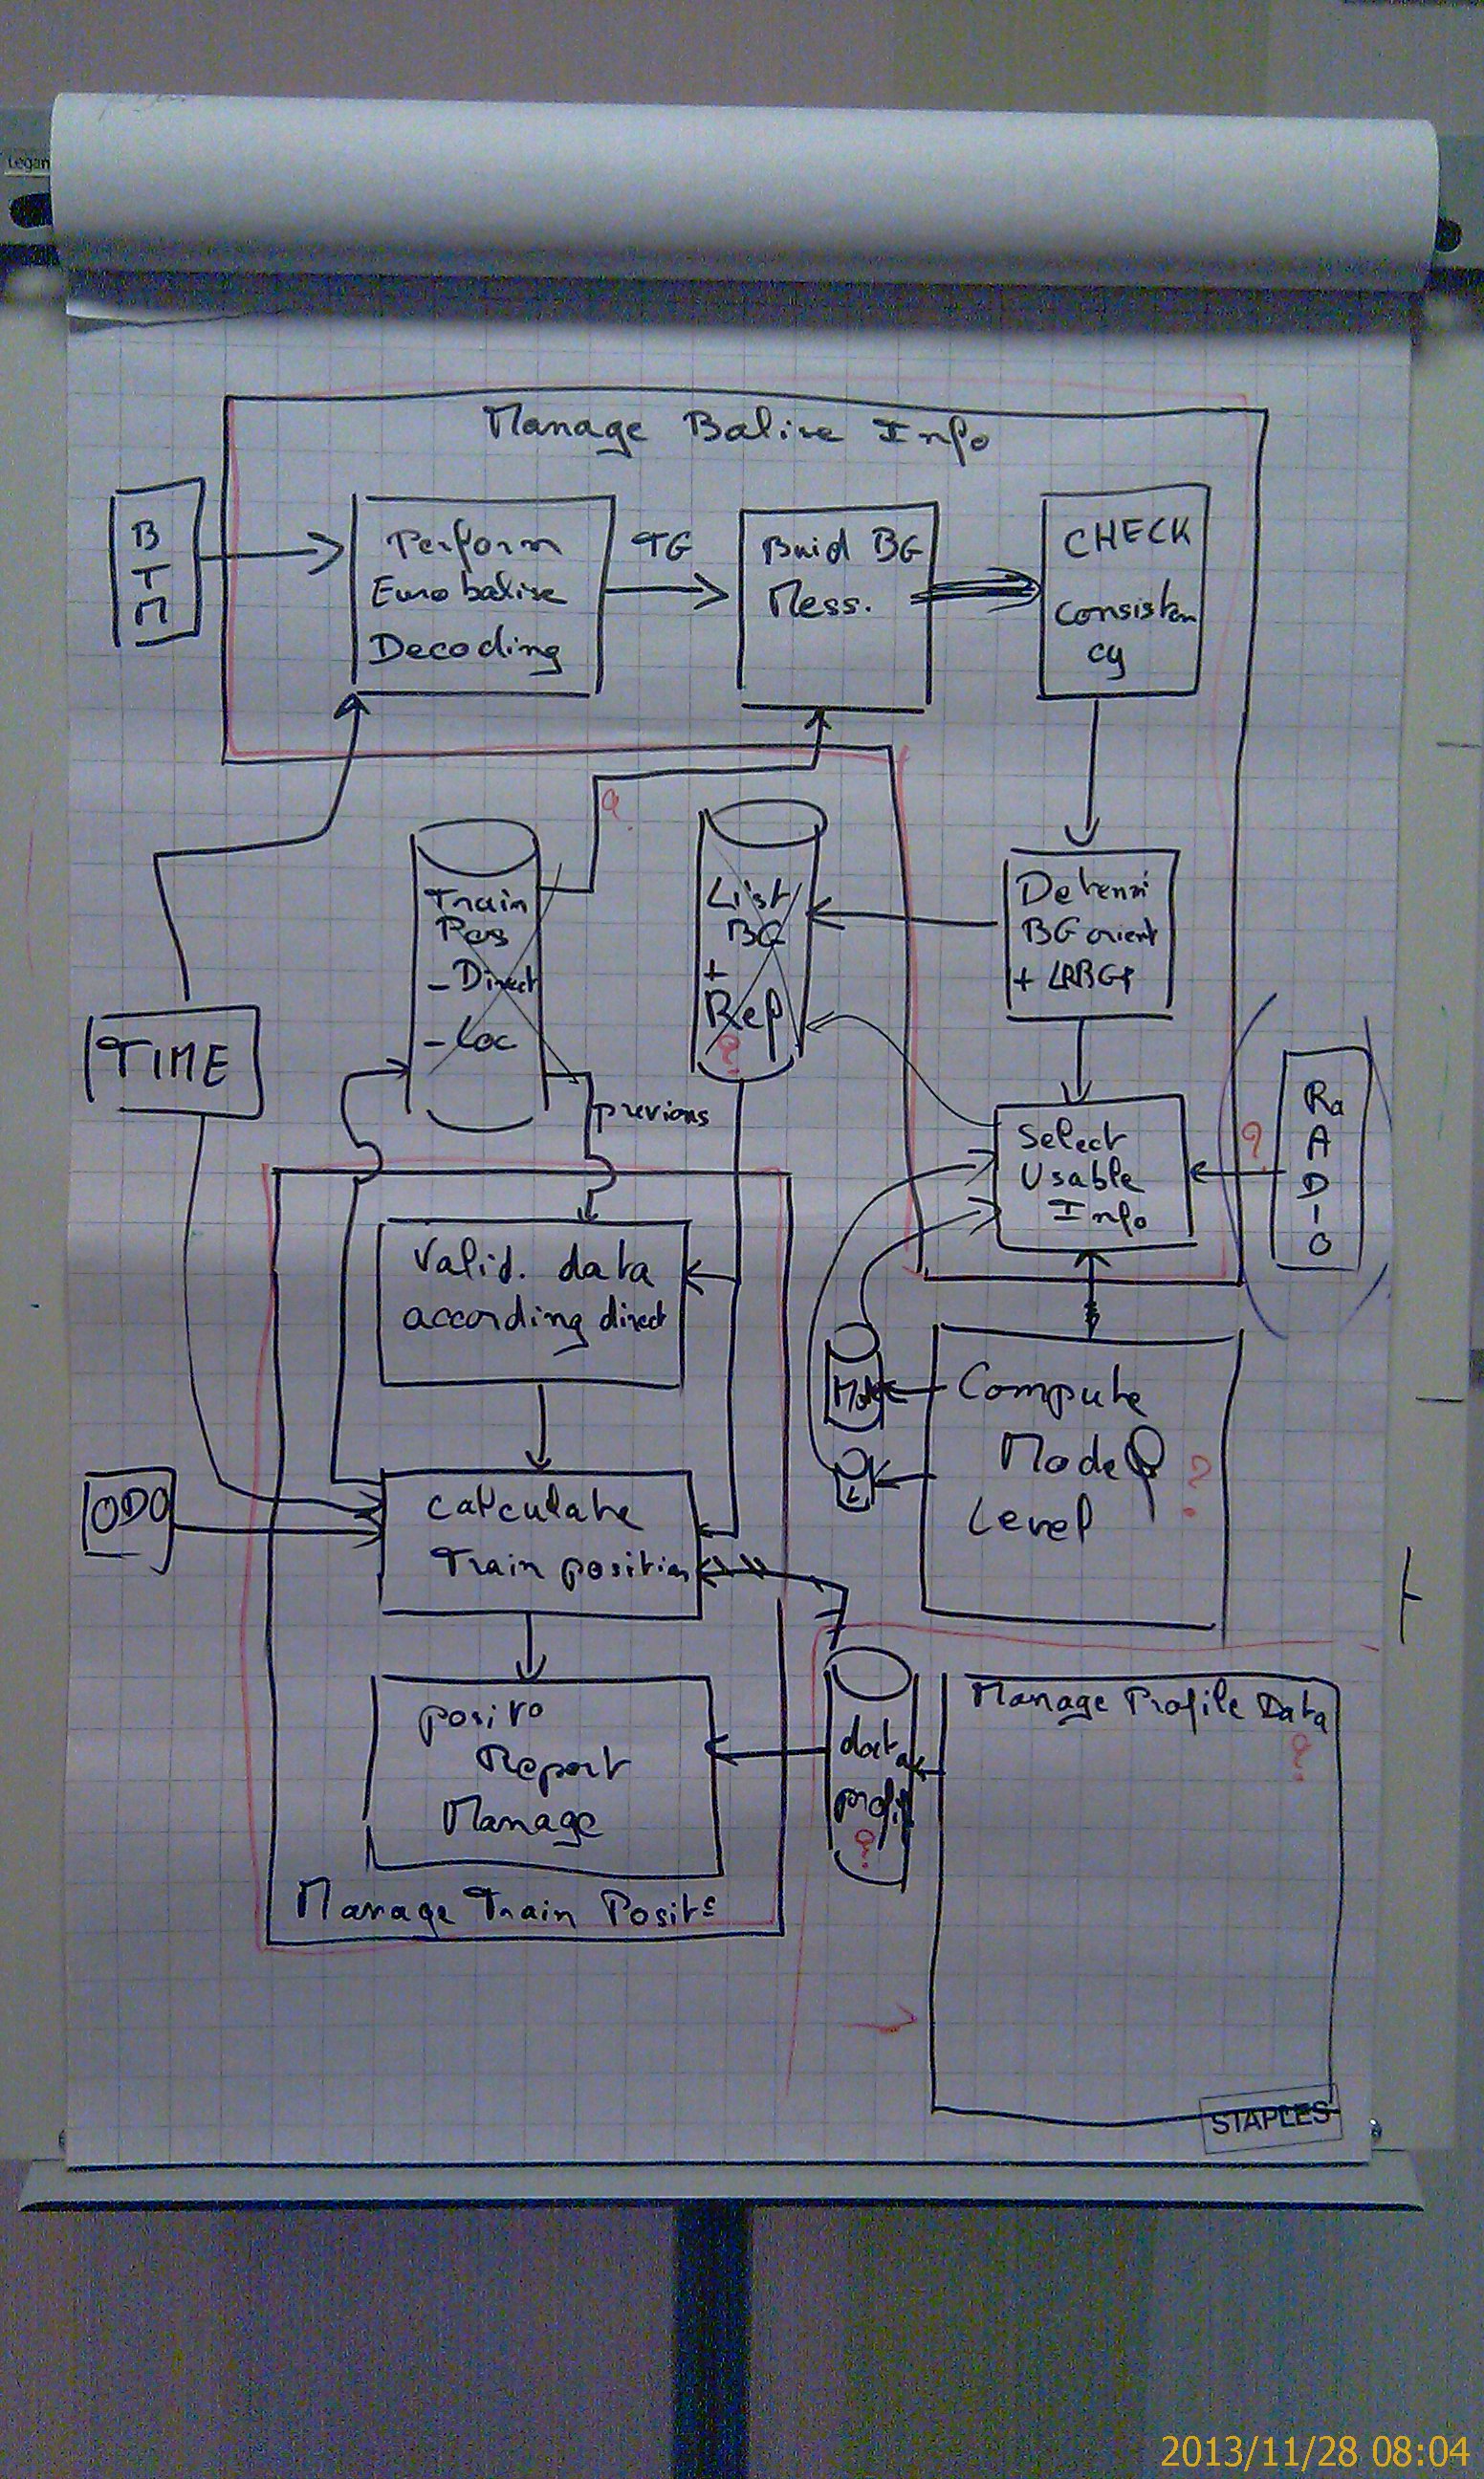 Legan
Manage Balise Info
B
T
M
Perform
Eurobalise
Decoding
TG
Buid BG
Mess.
CHECK
Consisten
cy
?
Train
Pos
- Direct
- Loc
List
BG
+
Rep
?
Determi
BG orient
+ LRBG
TIME
previous
Select
Usable
Info
?
Ra
A
D
I
O
Valid. data
according direct
Mode
L
Compute
Mode
Level
?
ODO
Calculate
Train position
posit°
Report
Manage
data
profil
?
Manage Profile Data
?
Manage Train Posit
STAPLES
2013/11/28 08:04